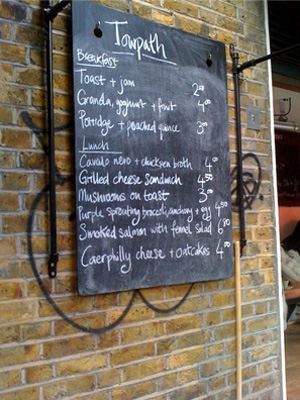 Towpath
Breakfast
Toast + jam 2.50
Granola, yoghurt + fruit 4.00
Porridge + poached quince 3.00
Lunch
Cavolo nero + chickpea broth 4.00
Grilled cheese sandwich 4.50
Mushrooms on toast 3.00
Purple sprouting broccoli, anchovy + egg 4.50
Smoked salmon with fennel salad 6.80
Caerphilly cheese + oatcakes 4.00